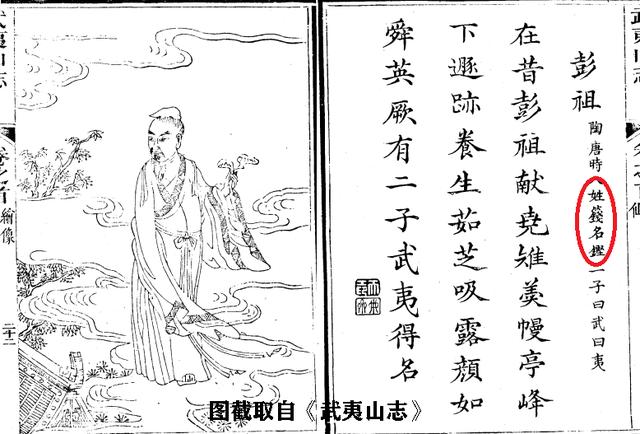 武夷山志
彭祖 陶唐時 姓籛名鑑 一子曰武曰夷
在昔彭祖献堯雉羹幔亭峰
下遯跡養生茹芝吸露顏如
舜英厥有二子武夷得名
武夷山志
卷之首
繪像
二十二
图截取自《武夷山志》